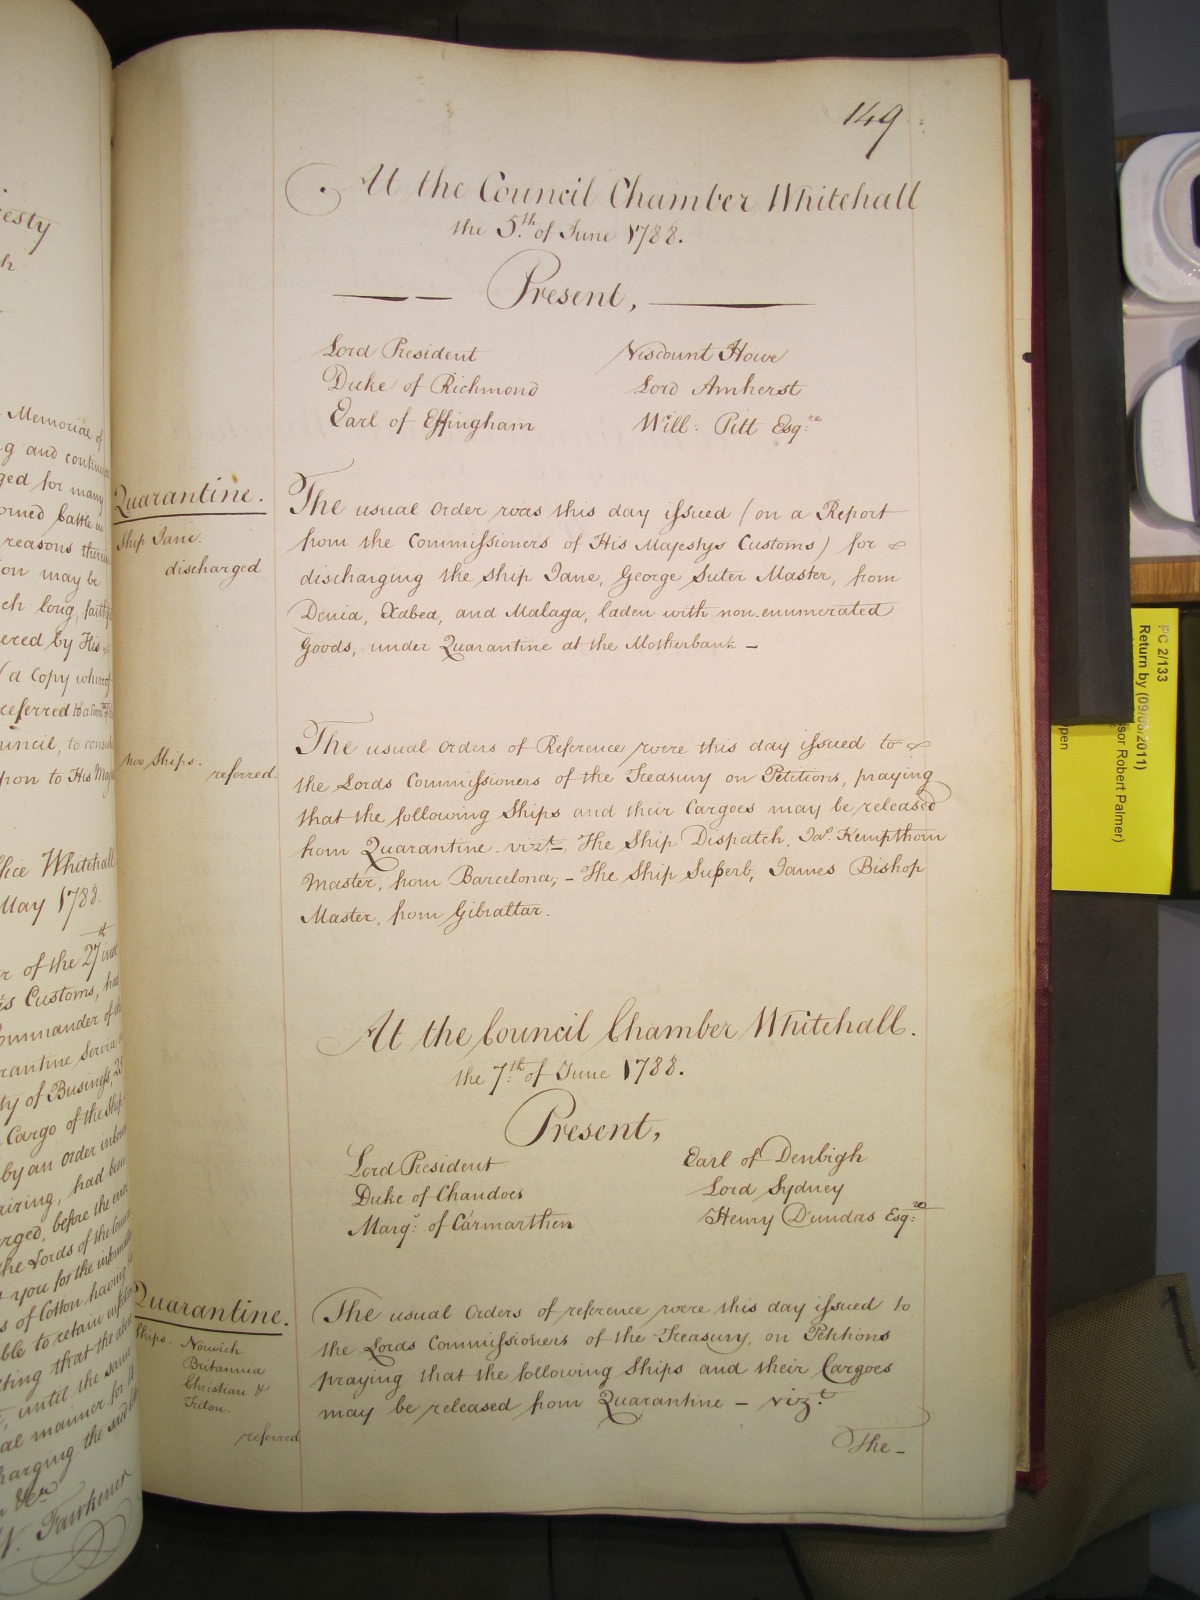 149
At the Council Chamber Whitehall
the 5.th of June 1788.
Present,
Lord President
Duke of Richmond
Earl of Effingham
Viscount Howe
Lord Amherst
Will: Pitt Esq:re
Quarantine.
Ship Jane.
discharged
The usual Order was this day issued (on a Report
from the Commissioners of His Majestys Customs) for
discharging the Ship Jane, George Suter Master, from
Denia, Xabea, and Malaga, laden with non enumerated
Goods, under Quarantine at the Motherbank –
two Ships.
referred.
The usual Orders of Reference were this day issued to
the Lords Commissioners of the Treasury on Petitions, praying
that the following Ships and their Cargoes may be released
from Quarantine. vizt – The Ship Dispatch, Jas. Kempthorn
Master, from Barcelona; – The Ship Superb, James Bishop
Master, from Gibraltar.
At the Council Chamber Whitehall.
the 7:th of June 1788.
Present,
Lord President
Duke of Chandos
Marq: of Carmarthen
Earl of Denbigh
Lord Sydney
Henry Dundas Esq:re
Quarantine.
Ships – Norwich
Britannia
Christian &
Triton.
referred
The usual Orders of reference were this day issued to
the Lords Commissioners of the Treasury, on Petitions
praying that the following Ships and their Cargoes
may be released from Quarantine – viz.t
The –
Memorial of
g and
for many
Cattle
reasons
may be
long,
by His
a Copy
referred to a
to
upon to His
Whitehall
May 1788.
of the 27
Customs,
ommander of
of Business,
Cargo of the Ship
by an order
had been
before the
the Lords of the
you for the
of Cotton having
to retain
that the
until the same
manner for
the said
W. Fawkener
PC 2/133
Return by (09/08/2011)
sor Robert Palmer)
pen